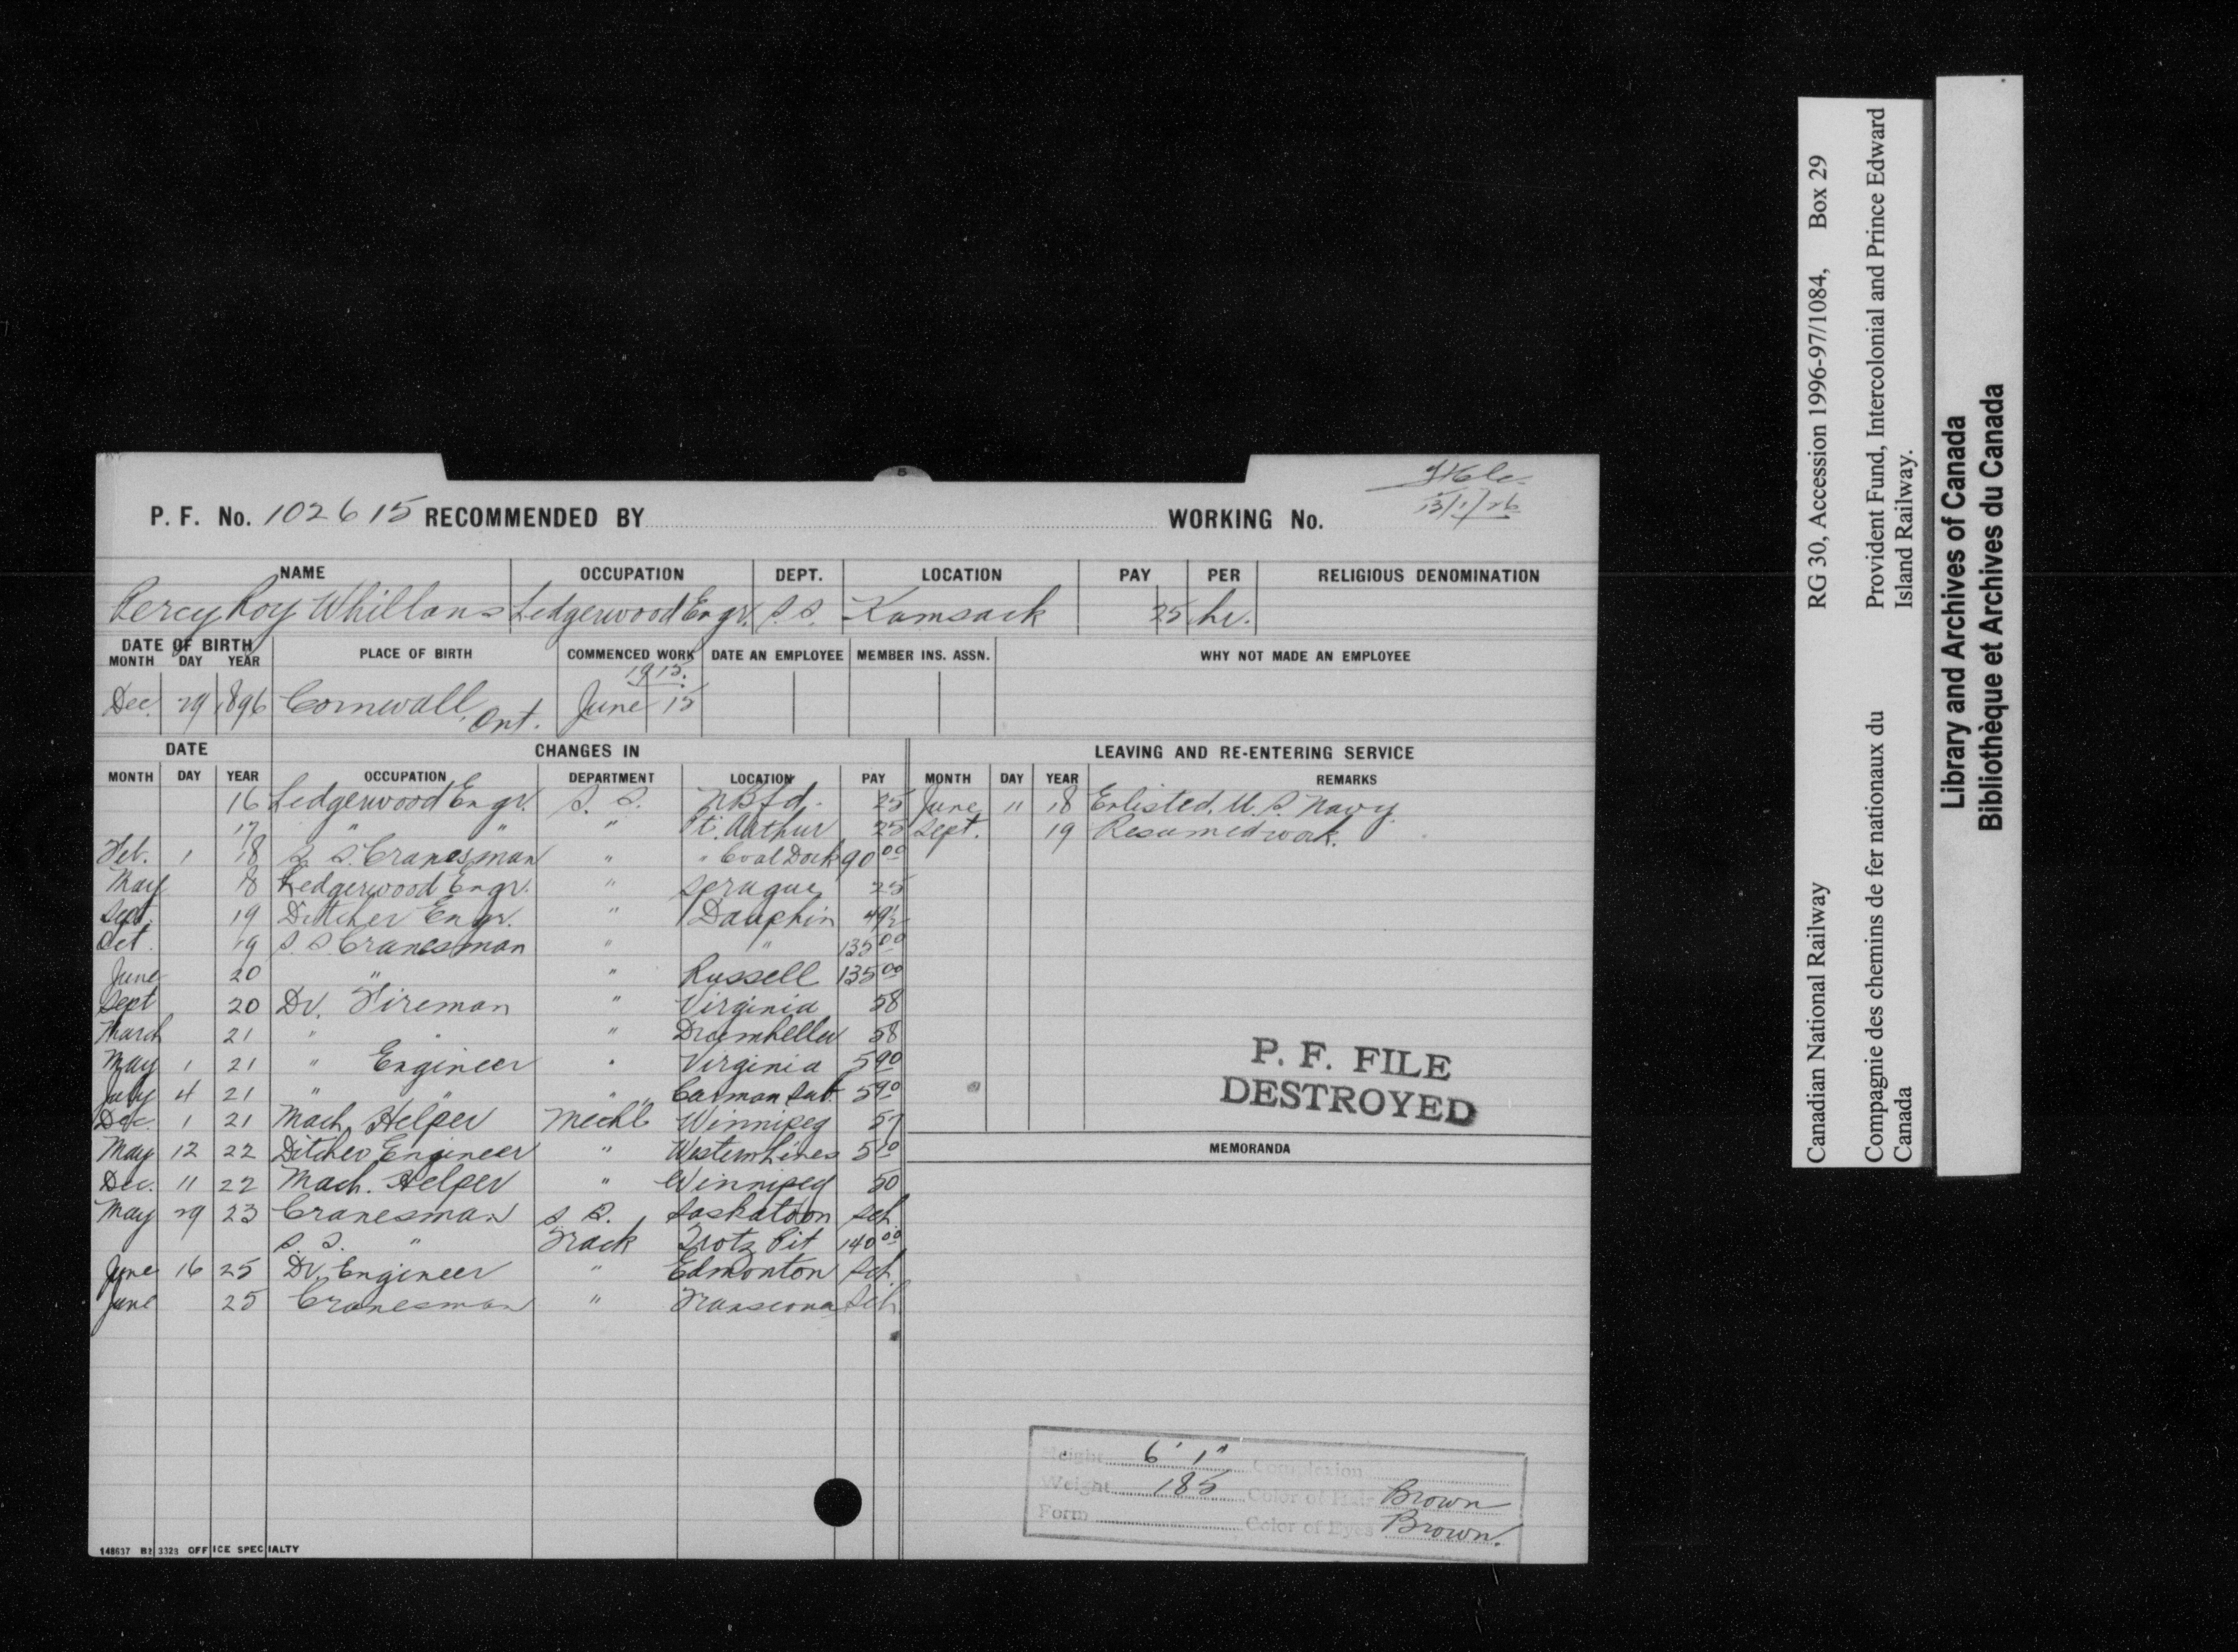 P. F. No. 102615 RECOMMENDED BY WORKING No.
13/1/26
NAME OCCUPATION DEPT. LOCATION PAY PER RELIGIOUS DENOMINATION
Percy Roy Whillans Ledgerwood Engr. S.S. Kamsack 25 hr.
DATE OF BIRTH
MONTH DAY YEAR PLACE OF BIRTH COMMENCED WORK DATE AN EMPLOYEE MEMBER INS. ASSN. WHY NOT MADE AN EMPLOYEE
1915.
Dec. 29 1896 Cornwall, Ont. June 15
DATE CHANGES IN LEAVING AND RE-ENTERING SERVICE
MONTH DAY YEAR OCCUPATION DEPARTMENT LOCATION PAY MONTH DAY YEAR REMARKS
16 Ledgerwood Engr. S. S. N Bfd. 25 June 11 18 Enlisted. U. S. Navy
17 " " " Pt. Arthur 25 Sept. 19 Resumed work.
Feb. 1 18 S. S. Cranesman " " Coal Dock 90 00
May 18 Ledgerwood Engr. " Sprague 25
Sept. 19 Ditcher Engr. " Dauphin 49½
Oct. 19 S. S. Cranesman " " 135 00
June 20 " " Russell 135 00
Sept 20 Dr. Fireman " Virginia 58
March 21 " " Drumheller 58
May 1 21 " Engineer " Virginia 5 90
July 4 21 " " " Carman Sub. 5 90
Dec. 1 21 Mach. Helper Mechl Winnipeg 57
May 12 22 Ditcher Engineer " Western Lines 5 10
Dec. 11 22 Mach. Helper " Winnipeg 50
May 29 23 Cranesman S. S. Saskatoon Sch.
S. S. " Track Trotz Pit 140 00
June 16 25 Dr. Engineer " Edmonton Sch.
June 25 Cranesman " Transcona Sch
P. F. FILE
DESTROYED
MEMORANDA
Height 6' 1" Complexion
Weight 185 Color of Hair Brown
Form Color of Eyes Brown.
148637 B2 3323 OFFICE SPECIALTY
Canadian National Railway RG 30, Accession 1996-97/1084, Box 29
Compagnie des chemins de fer nationaux du Provident Fund, Intercolonial and Prince Edward
Canada Island Railway.
Library and Archives of Canada
Bibliothèque et Archives du Canada